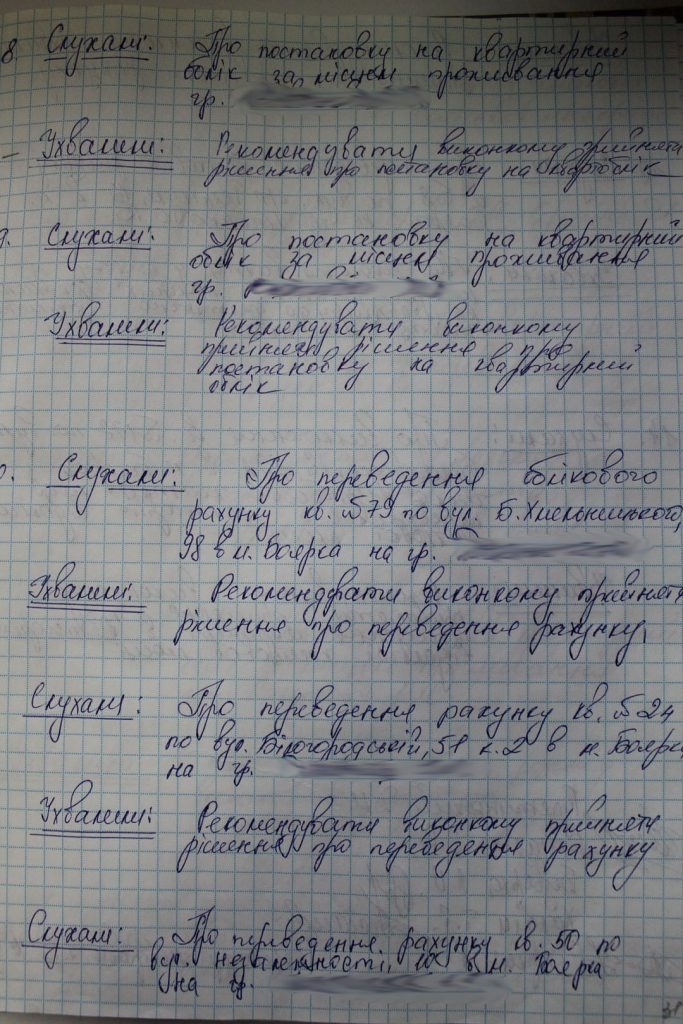 8. Слухали: Про постановку на квартирний
облік за місцем проживання
гр.
Ухвалили: Рекомендувати виконкому прийняти
рішення про постановку на квартоблік
9. Слухали: Про постановку на квартирний
облік за місцем проживання
гр.
Ухвалили: Рекомендувати виконкому
прийняти рішення про
постановку на квартирний
облік
Слухали: Про переведення облікового
рахунку кв. №79 по вул. Б. Хмельницького,
98 в м. Боярка на гр.
Ухвалили: Рекомендувати виконкому прийняти
рішення про переведення рахунку
Слухали: Про переведення рахунку кв. №24
по вул. Білогородській, 51 к. 2 в м. Боярка
на гр.
Ухвалили: Рекомендувати виконкому прийняти
рішення про переведення рахунку
Слухали: Про переведення рахунку кв. 50 по
вул. Незалежності, в м. Боярка
на гр.